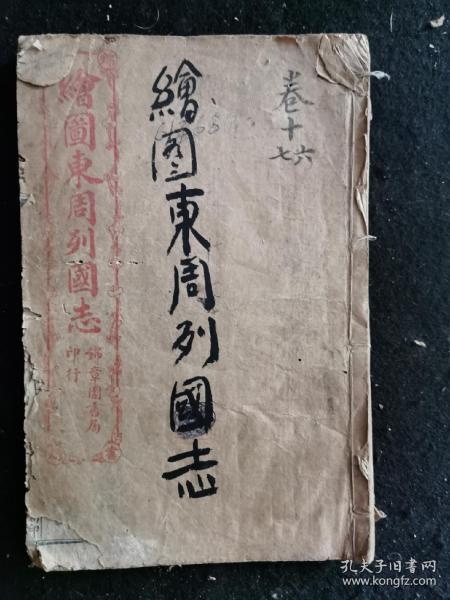 卷十六
七
繪圖東周列國志
繪圖東周列國志
錦章圖書局
印行
孔夫子旧书网
www.kongfz.com